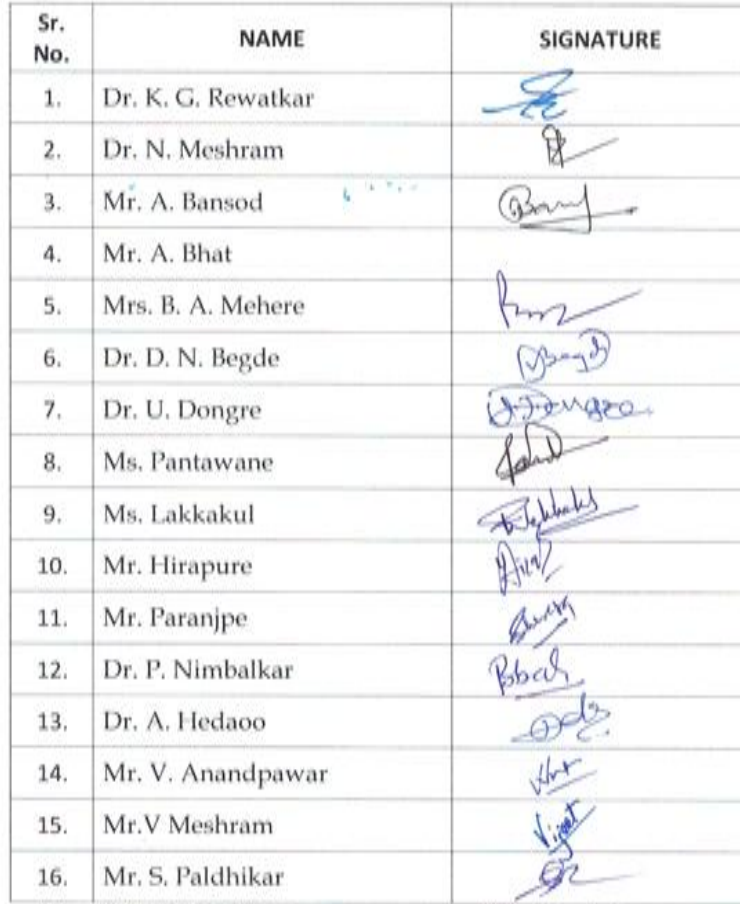 Sr. No. NAME SIGNATURE
1. Dr. K. G. Rewatkar
2. Dr. N. Meshram
3. Mr. A. Bansod
4. Mr. A. Bhat
5. Mrs. B. A. Mehere
6. Dr. D. N. Begde
7. Dr. U. Dongre
8. Ms. Pantawane
9. Ms. Lakkakul
10. Mr. Hirapure
11. Mr. Paranjpe
12. Dr. P. Nimbalkar
13. Dr. A. Hedaoo
14. Mr. V. Anandpawar
15. Mr.V Meshram
16. Mr. S. Paldhikar